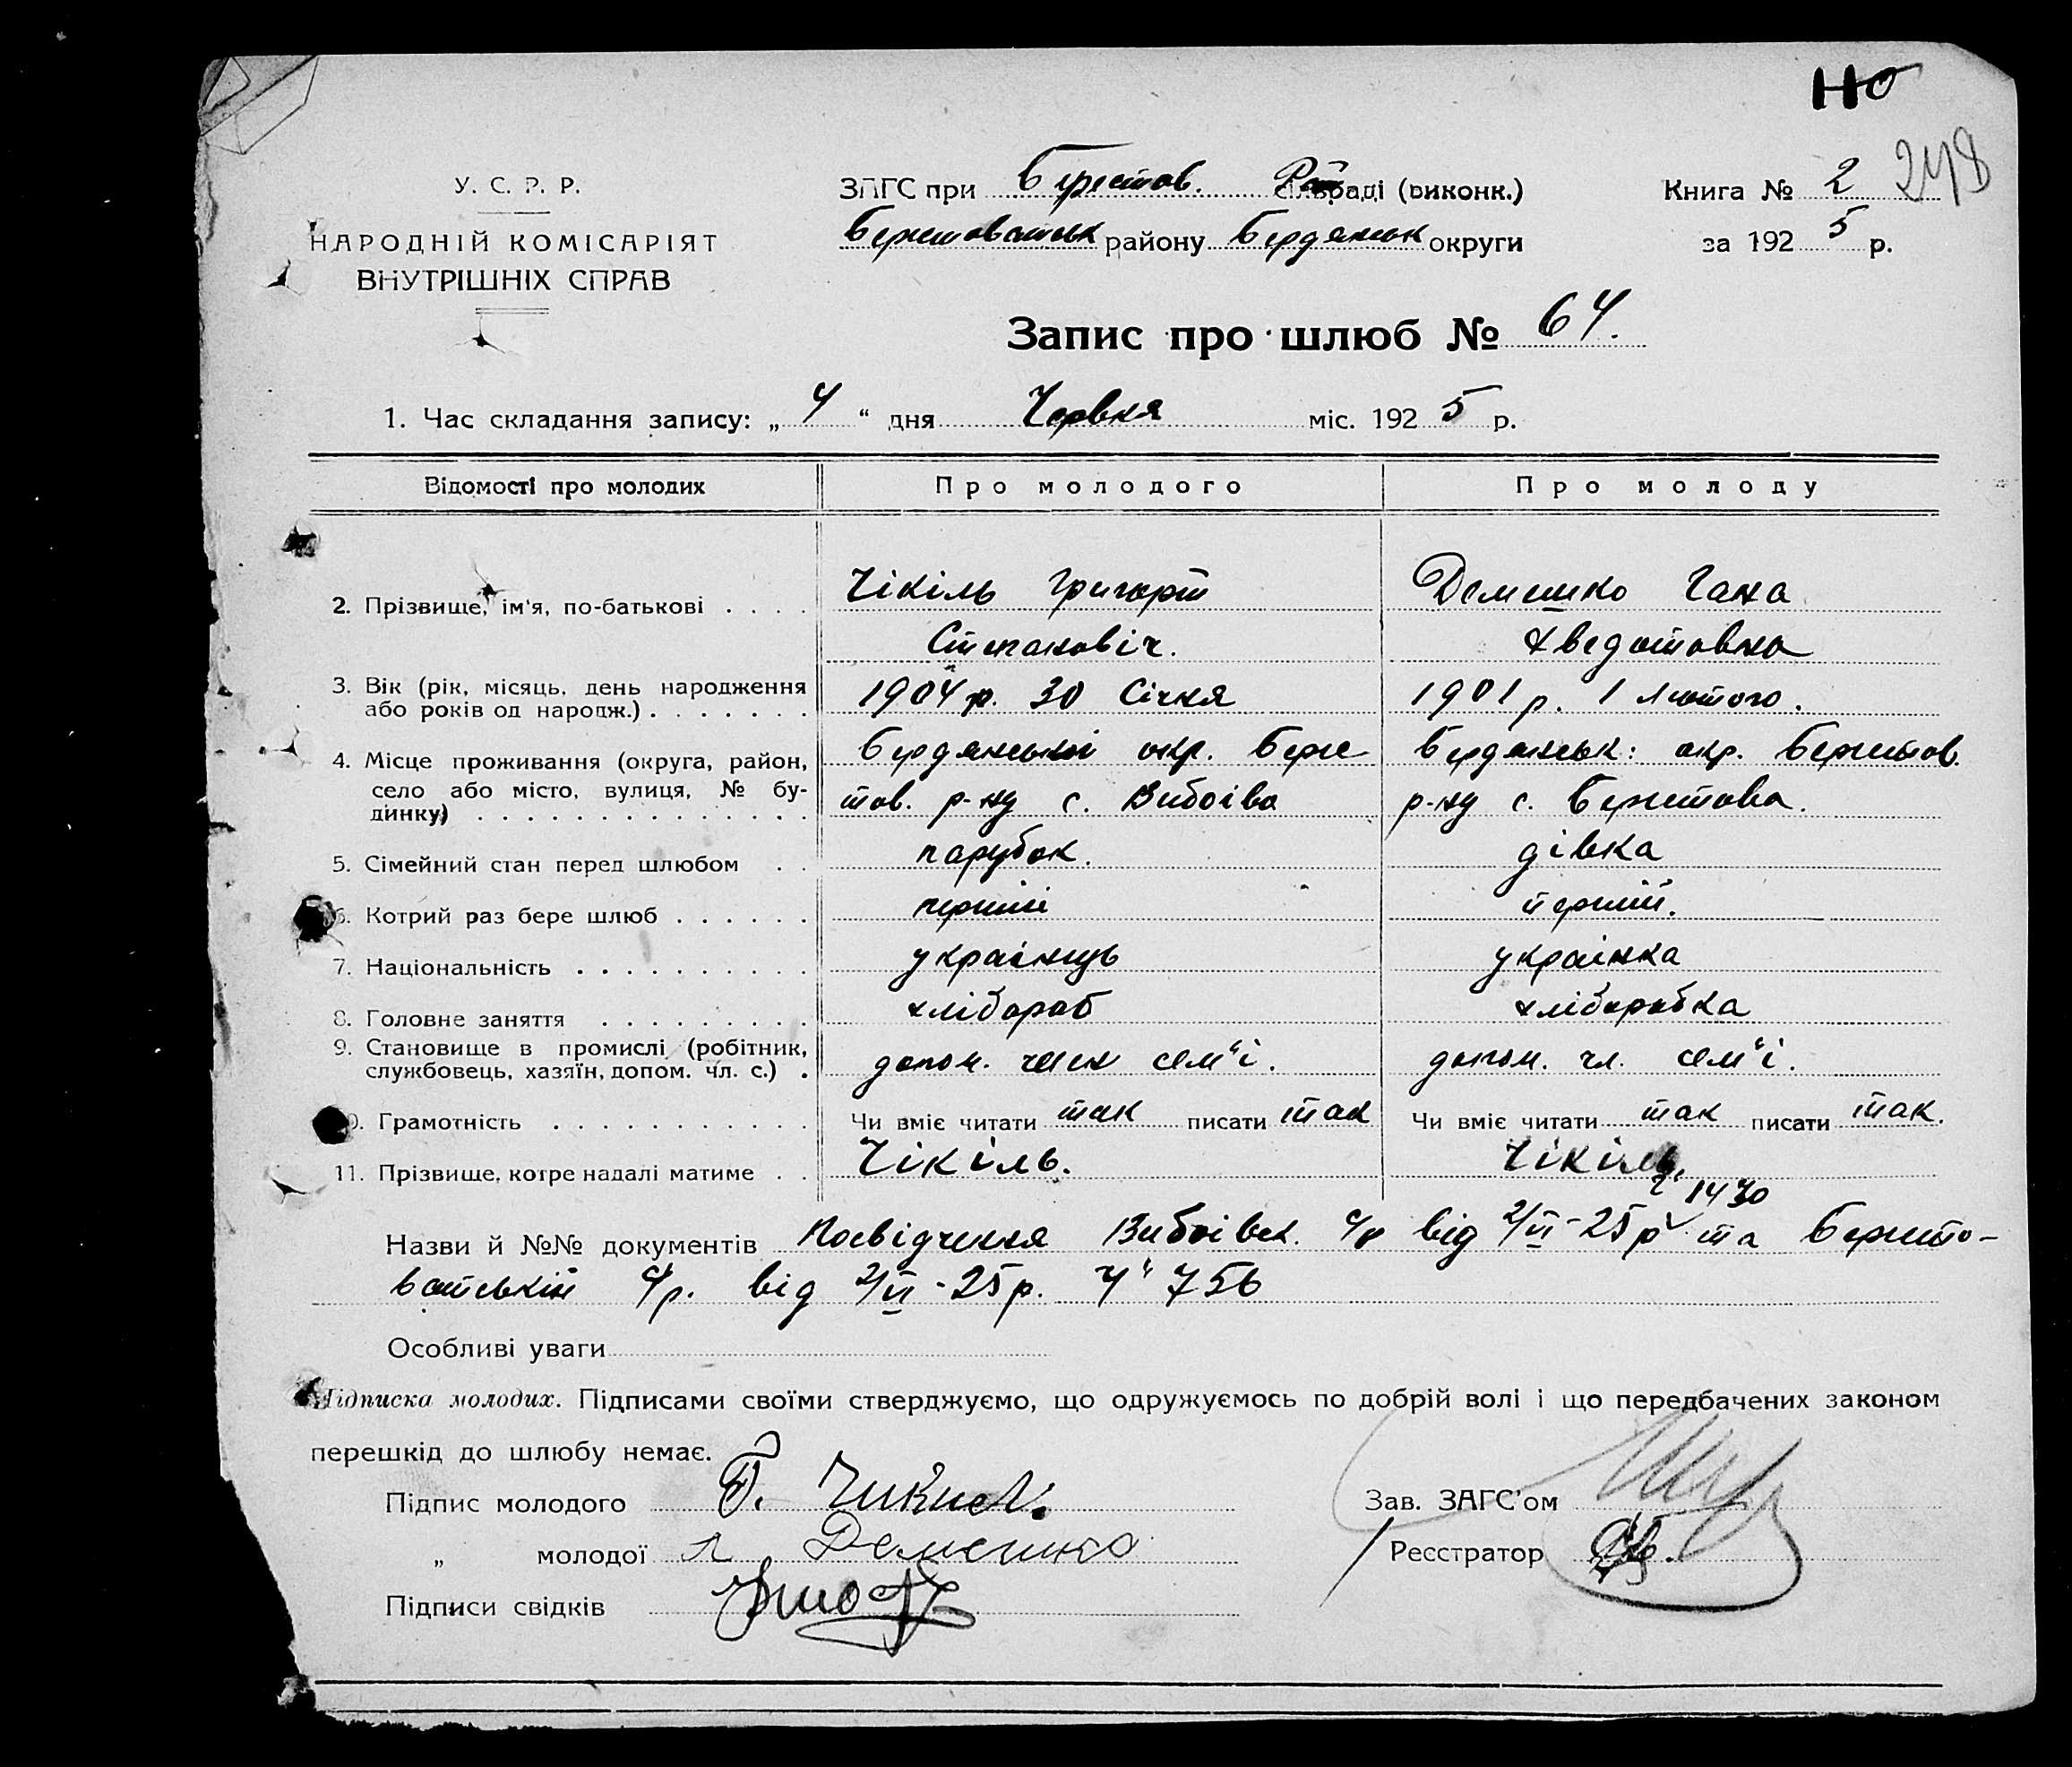 Но
248
У. С. Р. Р.
НАРОДНІЙ КОМІСАРІЯТ
ВНУТРІШНІХ СПРАВ
ЗАГС при Берестов. Рай сільраді (виконк.)
Берестоватськ району Бердянськ округи
Книга № 2
за 1925 р.
Запис про шлюб № 64.
1. Час складання запису: „ 4 “ дня Червня міс. 1925 р.
Відомості про молодих
Про молодого
Про молоду
2. Прізвище, ім'я, по-батькові . . . .
Чікіль Григорій
Степановіч.
Демешко Гана
Хведотовна
3. Вік (рік, місяць, день народження
або років од народж.) . . . . . . .
1904 р. 30 Січня
1901 р. 1 Лютого.
4. Місце проживання (округа, район,
село або місто, вулиця, № бу-
динку) . . . . . . . . . . . . . .
Бердянської окр. Берес
тов. р-ну с. Вибоіва
Бердянськ: окр. Берестов.
р-ну с. Берестова.
5. Сімейний стан перед шлюбом . .
парубок.
дівка
6. Котрий раз бере шлюб . . . . . .
перший
перший.
7. Національність . . . . . . . . . .
украінець
украінка
8. Головне заняття . . . . . . . . .
хлібороб
хліборобка
9. Становище в промислі (робітник,
службовець, хазяїн, допом. чл. с.) .
допом. член сем"і.
допом. чл. сем"і.
10. Грамотність . . . . . . . . . . .
Чи вміє читати так писати так
Чи вміє читати так писати так.
11. Прізвище, котре надалі матиме . .
Чікіль.
Чікіль.
ч" 1430
Назви й №№ документів Посвідчення Вибоівск. с/р від 2/VI-25 р та Бересто-
ватській с/р. від 2/VI-25 р. Ч" 756
Особливі уваги
Підписка молодих. Підписами своїми стверджуємо, що одружуємось по добрій волі і що передбачених законом
перешкід до шлюбу немає.
Підпис молодого Г. Чикиль
„ молодої А Демешко
Підписи свідків
Зав. ЗАГС'ом
Реєстратор